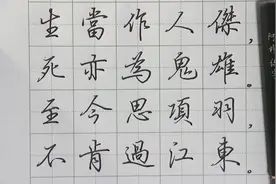 生當作人傑，
死亦為鬼雄。
至今思項羽，
不肯過江東。